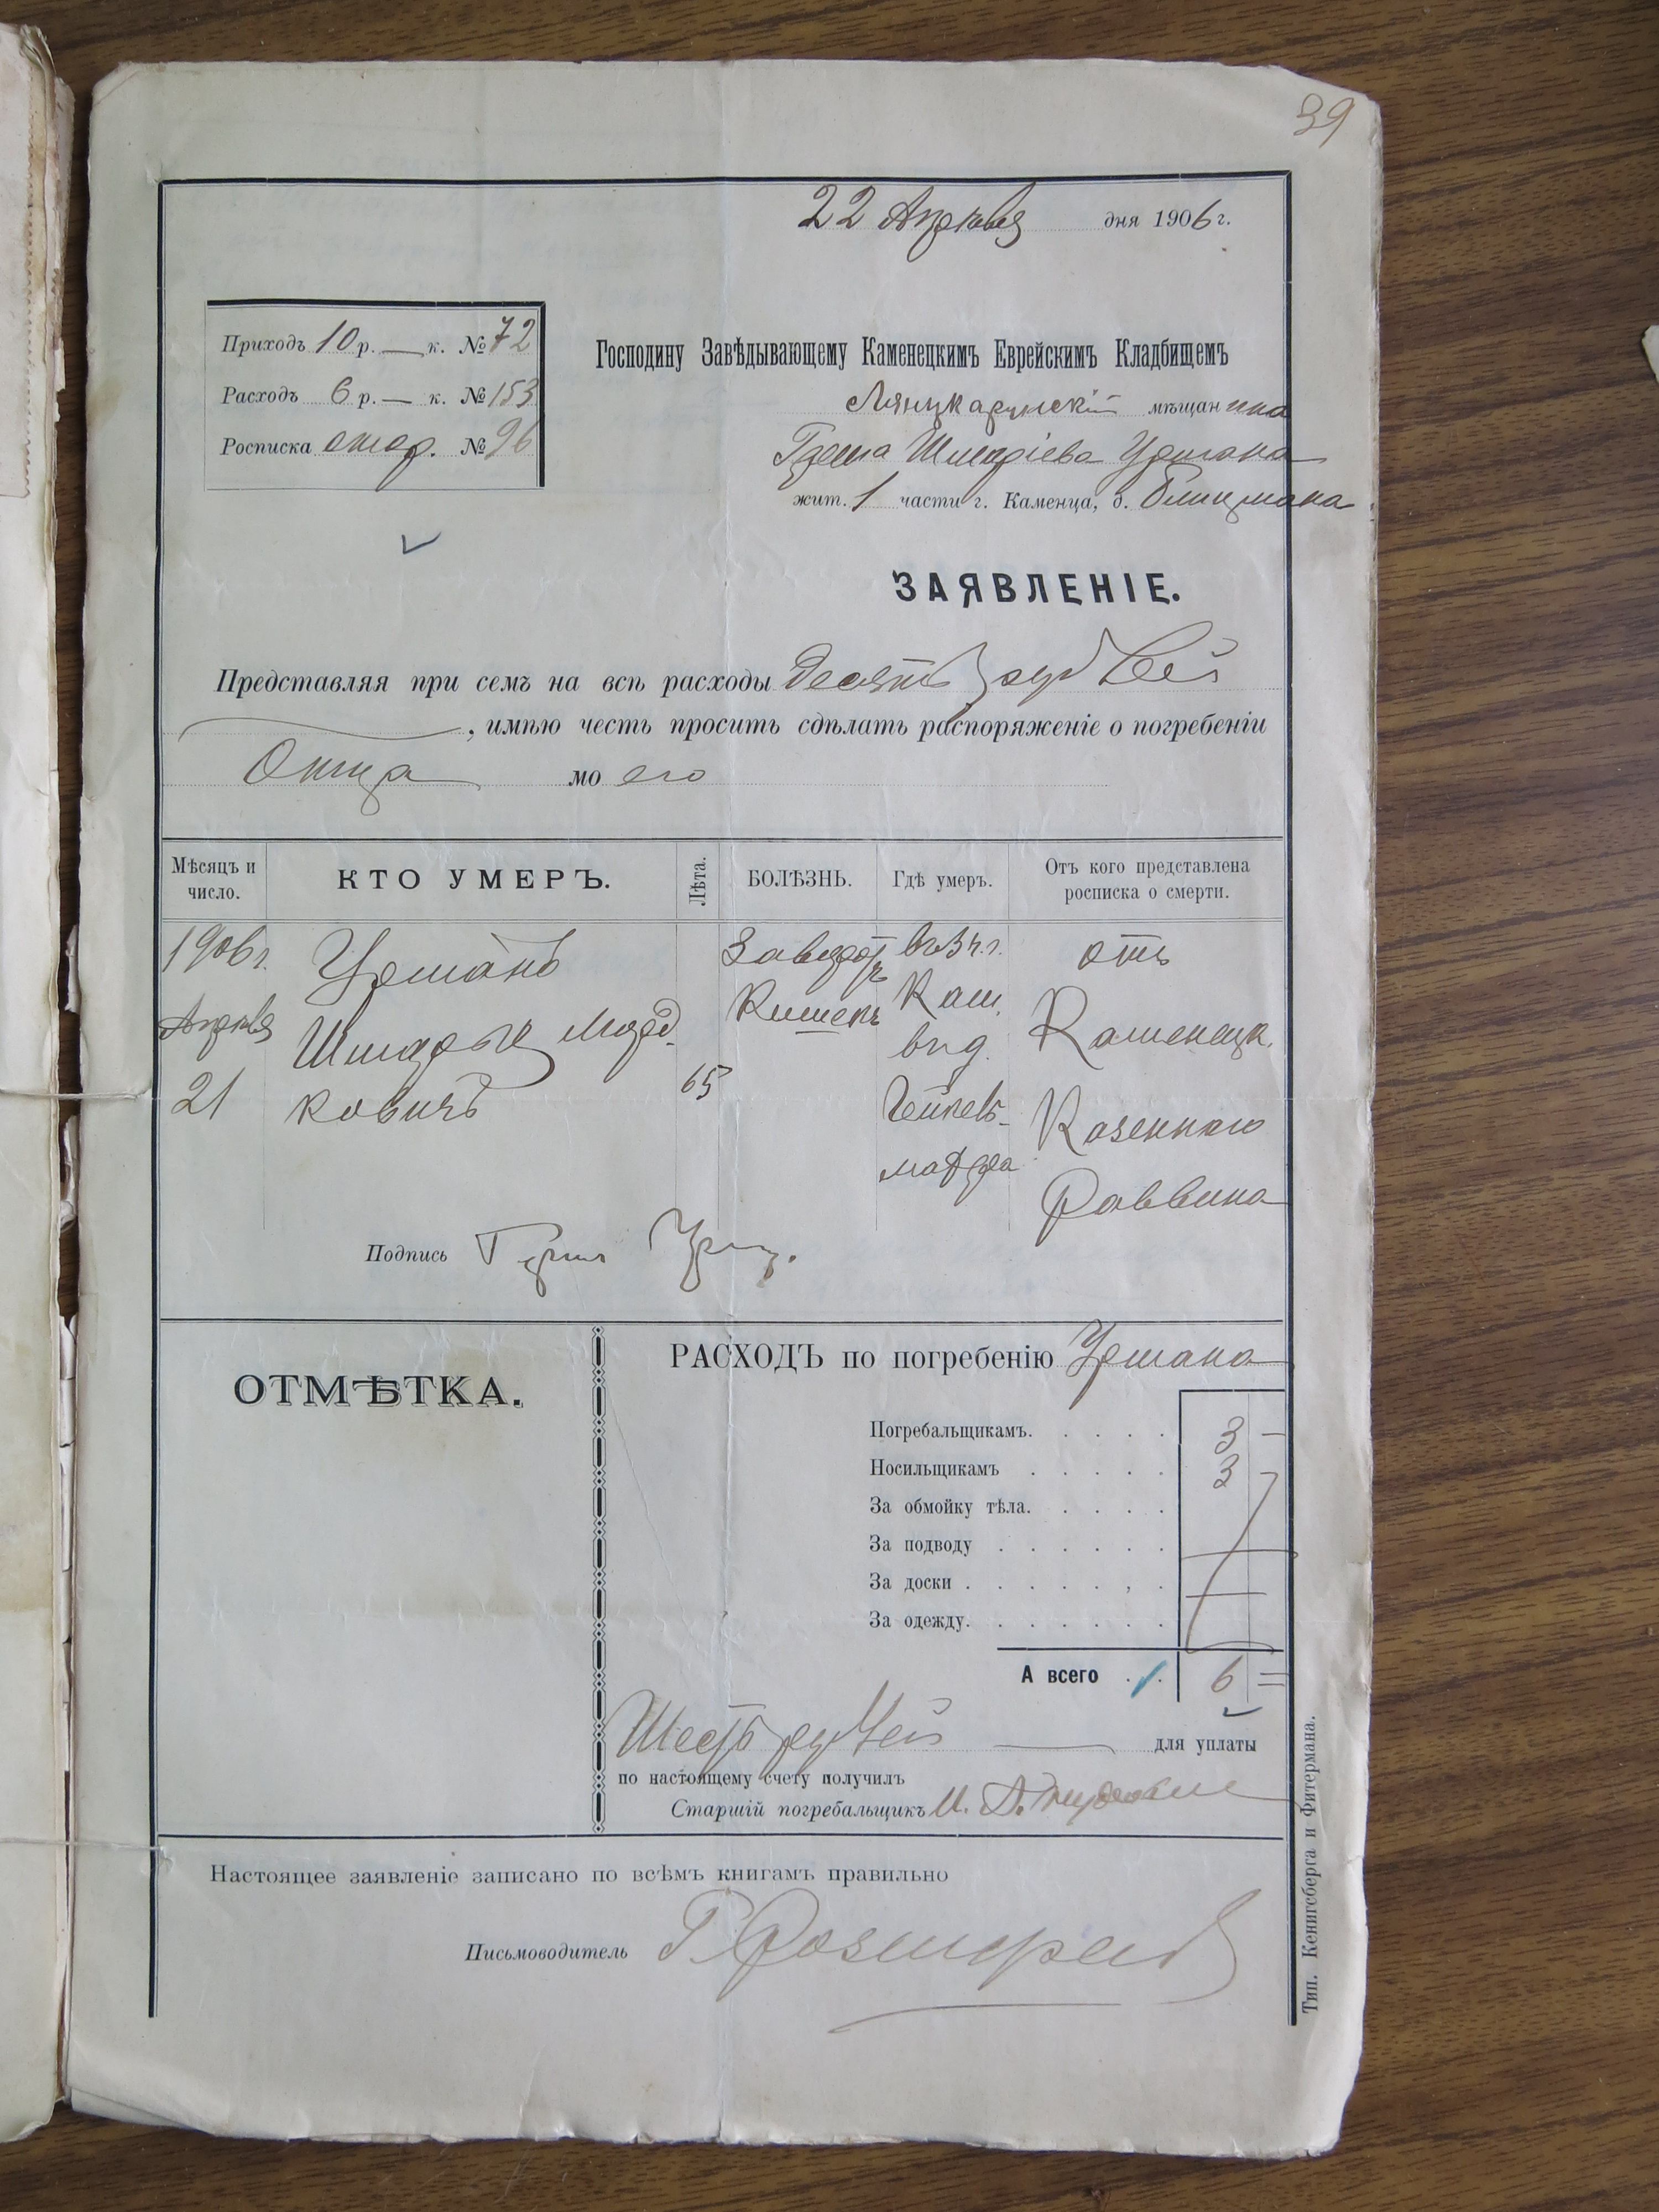 39
22 Апрѣля дня 1906 г.
Приходъ 10 р. — к. № 72
Расходъ 6 р. — к. № 153
Росписка стар. № 96
Господину Завѣдывающему Каменецкимъ Еврейскимъ Кладбищемъ
Лянцкарунскій мѣщанина
Шмарiева Урмана
жит. 1 части г. Каменца, д.
ЗАЯВЛЕНІЕ.
Представляя при семъ на всѣ расходы десять рублей
, имѣю честь просить сдѣлать распоряженіе о погребеніи
Отца моего
Мѣсяцъ и число. КТО УМЕРЪ. Лѣта. БОЛѢЗНЬ. Гдѣ умеръ. Отъ кого представлена росписка о смерти.
1906 г. Урманъ Заворотъ въ 3 ч. г. отъ
Апрѣля Шмарье Морд Кишекъ Кам. Каменецк.
21 ковичъ 65 Казеннаго
Раввина
Подпись
ОТМѢТКА.
РАСХОДЪ по погребенію Урмана
Погребальщикамъ. 3 —
Носильщикамъ 3
За обмойку тѣла.
За подводу
За доски
За одежду.
А всего 6 =
Шесть рублей — для уплаты
по настоящему счету получилъ
Старшій погребальщикъ
Настоящее заявленіе записано по всѣмъ книгамъ правильно
Письмоводитель
Тип. Кенигсберга и Фитермана.